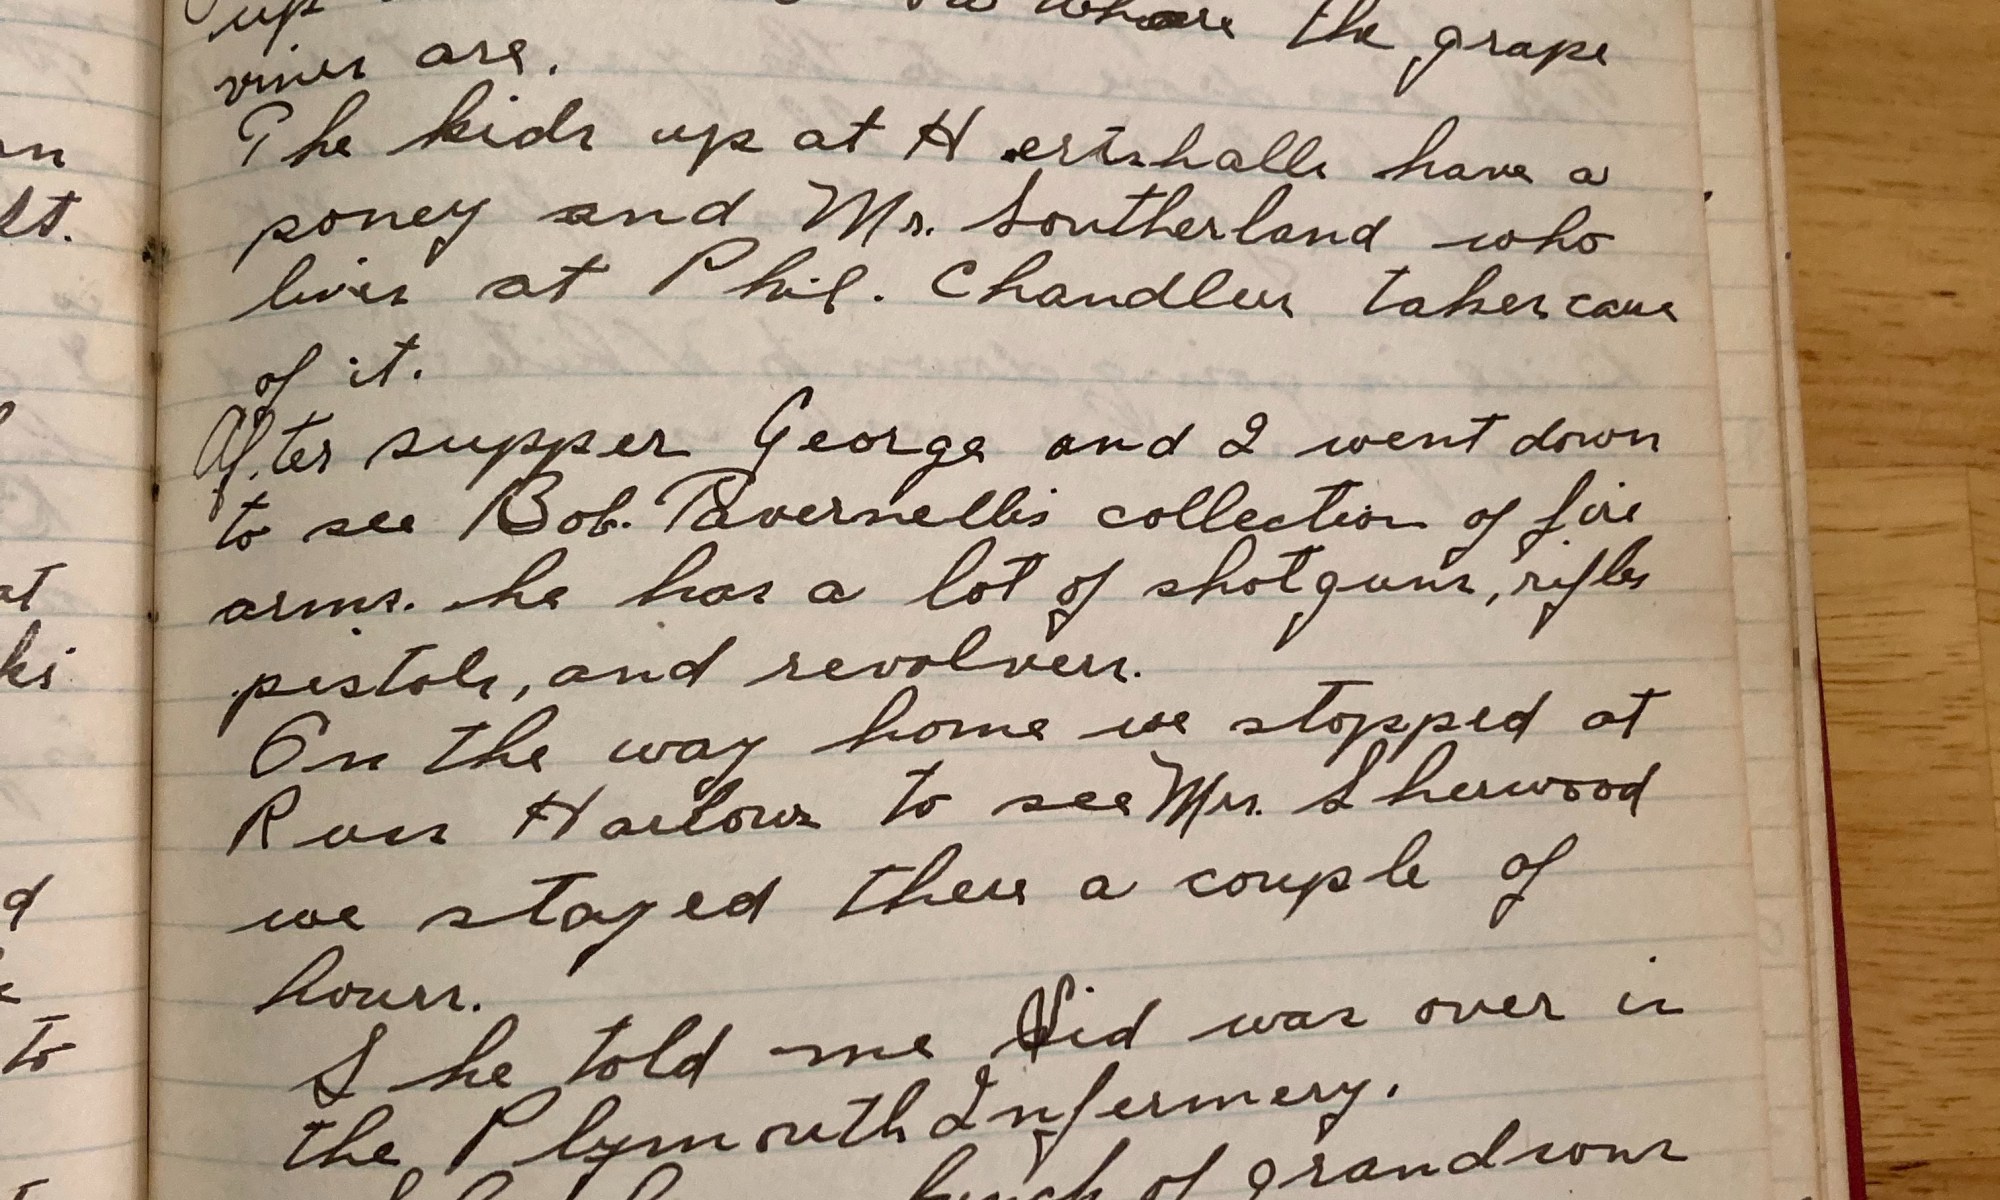 up where the grape
vines are.
The kids up at Hershalls have a
poney and Mr. Southerland who
lives at Phil. Chandlers takes care
of it.
After supper George and I went down
to see Bob. Tavernellis collection of fire
arms. he has a lot of shotguns, rifles
pistols, and revolvers.
On the way home we stopped at
Russ Harlows to see Mrs. Sherwood
we stayed there a couple of
hours.
She told me Sid was over in
the Plymouth Infermery.
bunch of grandsons
on
st.
at
ks
d
to